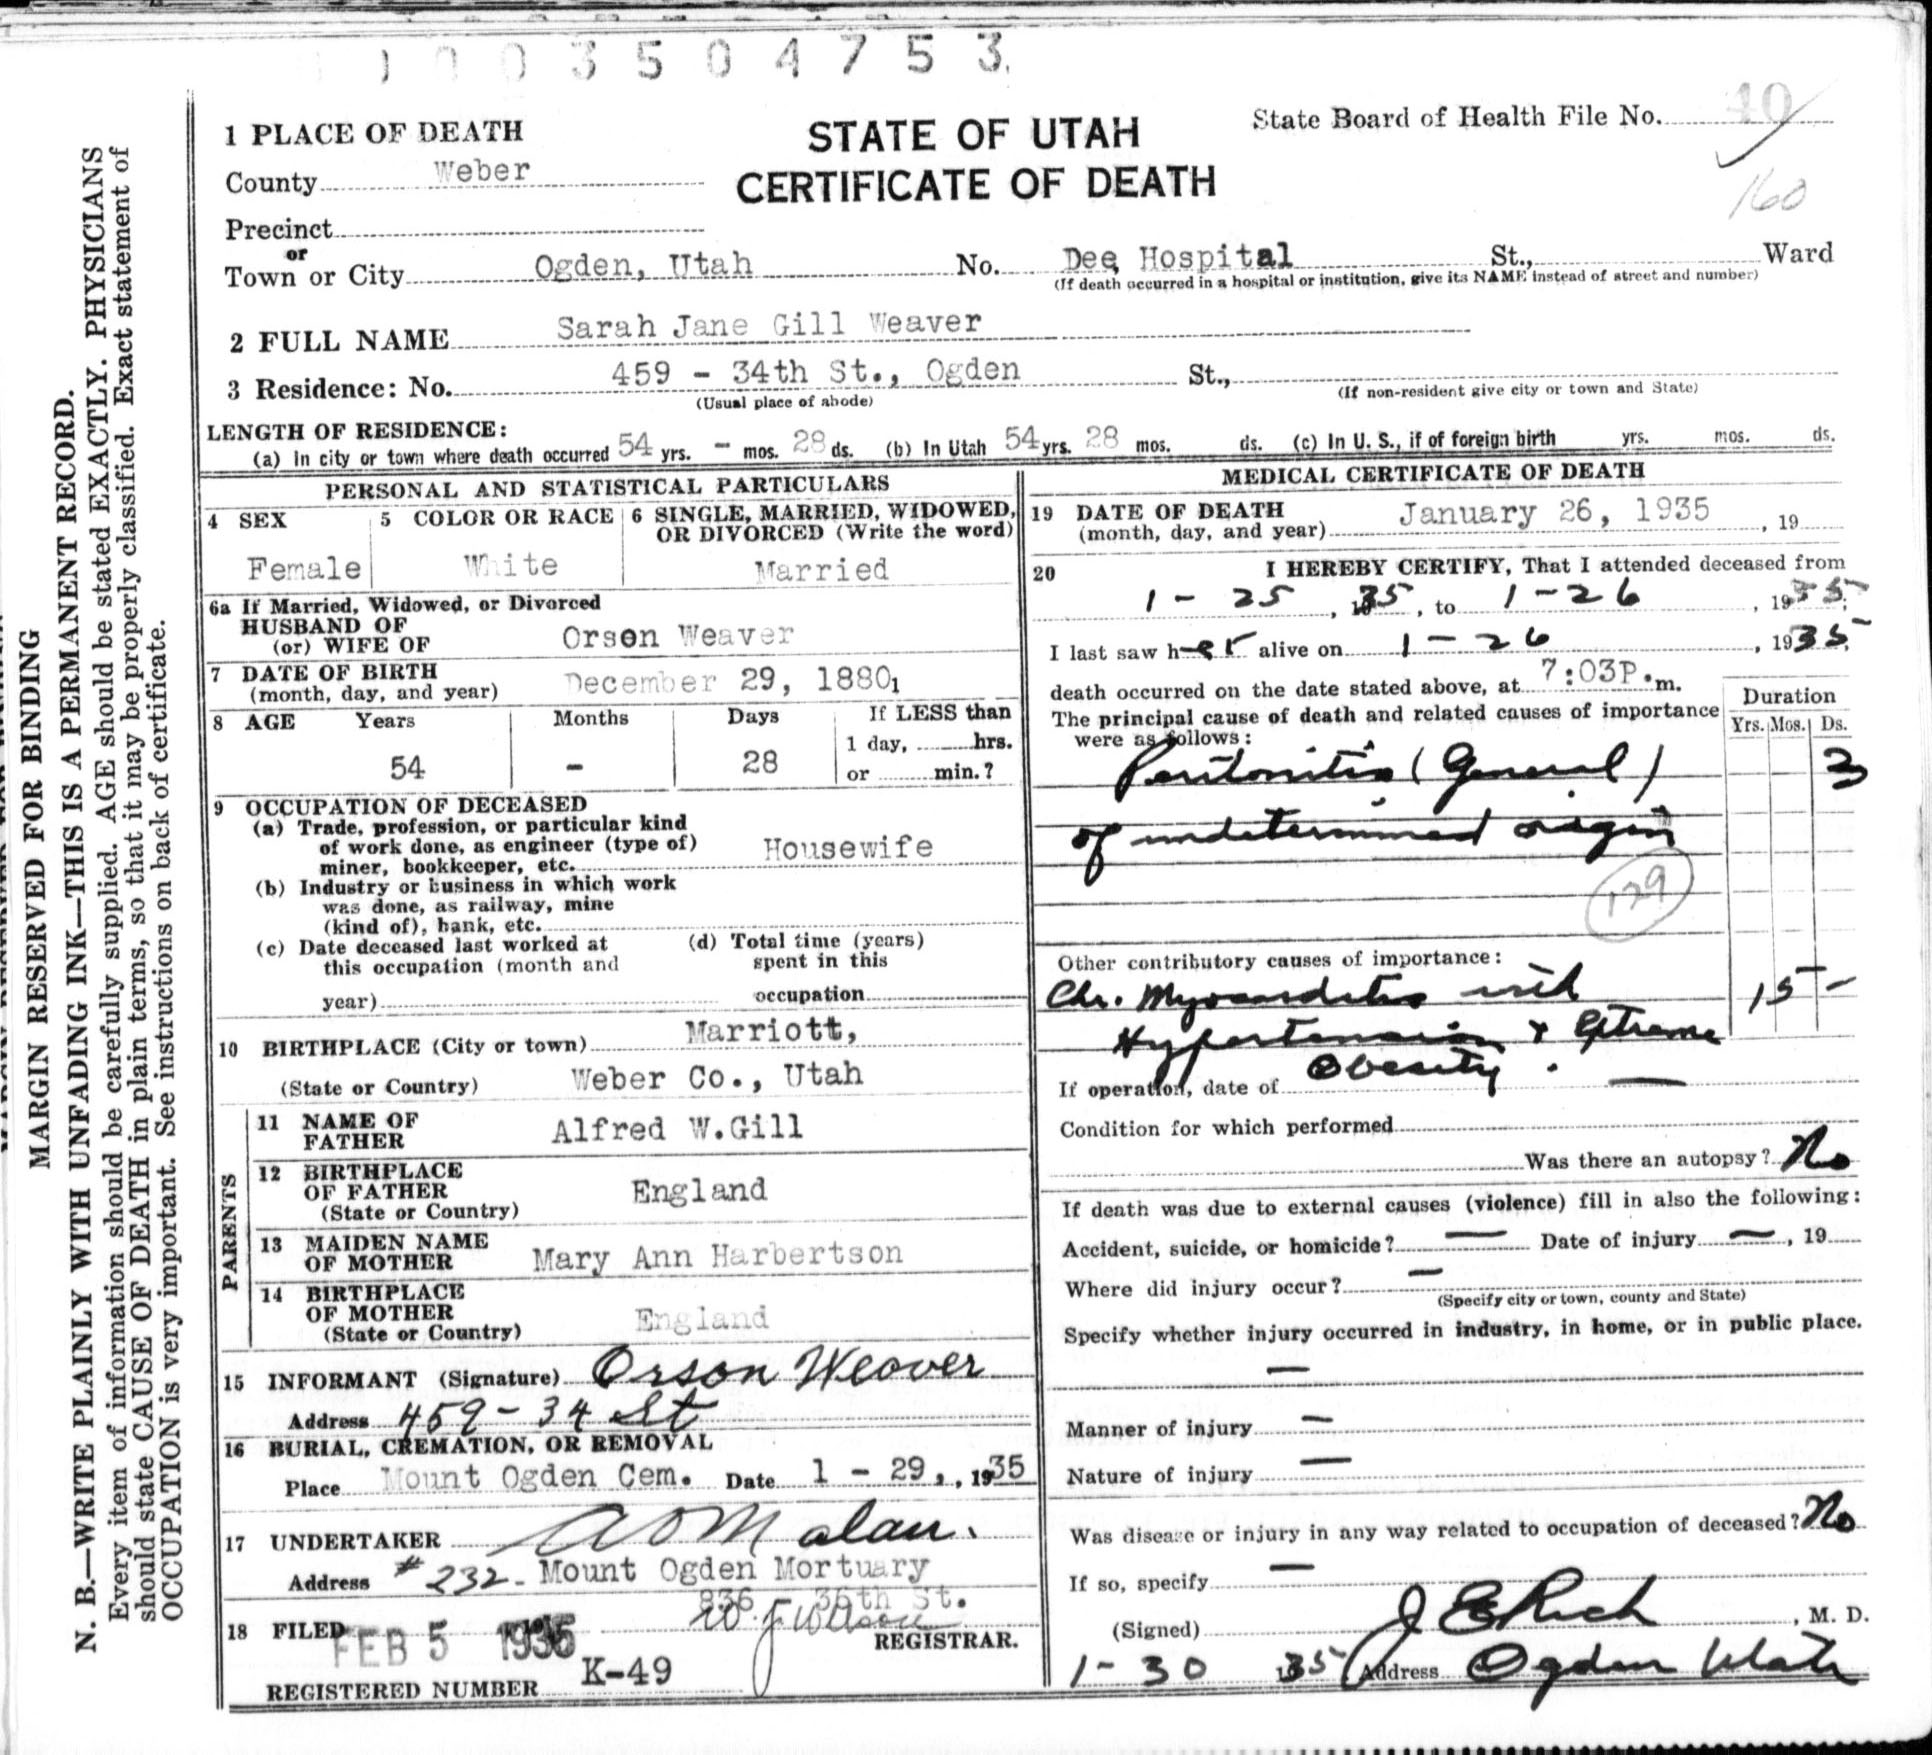 0003504753
1 PLACE OF DEATH
STATE OF UTAH
CERTIFICATE OF DEATH
State Board of Health File No. 40
160
County Weber
Precinct
or
Town or City Ogden, Utah No. Dee Hospital St., Ward
(If death occurred in a hospital or institution, give its NAME instead of street and number)
2 FULL NAME Sarah Jane Gill Weaver
3 Residence: No. 459 - 34th St., Ogden St.,
(Usual place of abode) (If non-resident give city or town and State)
LENGTH OF RESIDENCE:
(a) In city or town where death occurred 54 yrs. - mos. 28 ds. (b) In Utah 54 yrs. 28 mos. ds. (c) In U. S., if of foreign birth yrs. mos. ds.
PERSONAL AND STATISTICAL PARTICULARS
4 SEX
Female
5 COLOR OR RACE
White
6 SINGLE, MARRIED, WIDOWED,
OR DIVORCED (Write the word)
Married
6a If Married, Widowed, or Divorced
HUSBAND OF
(or) WIFE OF Orson Weaver
7 DATE OF BIRTH
(month, day, and year) December 29, 1880
8 AGE Years Months Days If LESS than
1 day, hrs.
54 - 28 or min.?
9 OCCUPATION OF DECEASED
(a) Trade, profession, or particular kind
of work done, as engineer (type of)
miner, bookkeeper, etc. Housewife
(b) Industry or business in which work
was done, as railway, mine
(kind of), bank, etc.
(c) Date deceased last worked at
this occupation (month and
year)
(d) Total time (years)
spent in this
occupation
10 BIRTHPLACE (City or town) Marriott,
(State or Country) Weber Co., Utah
PARENTS
11 NAME OF
FATHER Alfred W.Gill
12 BIRTHPLACE
OF FATHER England
(State or Country)
13 MAIDEN NAME
OF MOTHER Mary Ann Harbertson
14 BIRTHPLACE
OF MOTHER England
(State or Country)
15 INFORMANT (Signature) Orson Weaver
Address 459 - 34 St
16 BURIAL, CREMATION, OR REMOVAL
Place Mount Ogden Cem. Date 1 - 29, , 1935
17 UNDERTAKER A O Malan.
Address # 232 - Mount Ogden Mortuary
836 36th St.
18 FILED FEB 5 1935
REGISTRAR.
REGISTERED NUMBER K-49
MEDICAL CERTIFICATE OF DEATH
19 DATE OF DEATH
(month, day, and year) January 26, 1935 , 19
20 I HEREBY CERTIFY, That I attended deceased from
1 - 25 , 1935, to 1 - 26 , 1935;
I last saw her alive on 1 - 26 , 1935;
death occurred on the date stated above, at 7:03P.m.
The principal cause of death and related causes of importance
were as follows:
Duration
Yrs. Mos. Ds.
Peritonitis (General) 3
of undetermined origin
129
Other contributory causes of importance:
Chr. Myocarditis with 15 -
Hypertension & Extreme
Obesity.
If operation, date of —
Condition for which performed
Was there an autopsy? No
If death was due to external causes (violence) fill in also the following:
Accident, suicide, or homicide? — Date of injury —, 19
Where did injury occur? —
(Specify city or town, county and State)
Specify whether injury occurred in industry, in home, or in public place.
—
Manner of injury —
Nature of injury —
Was disease or injury in any way related to occupation of deceased? No
If so, specify —
(Signed) J E Rich , M. D.
1 - 30 1935 Address Ogden Utah
MARGIN RESERVED FOR BINDING
N. B.—WRITE PLAINLY WITH UNFADING INK—THIS IS A PERMANENT RECORD.
Every item of information should be carefully supplied. AGE should be stated EXACTLY. PHYSICIANS
should state CAUSE OF DEATH in plain terms, so that it may be properly classified. Exact statement of
OCCUPATION is very important. See instructions on back of certificate.